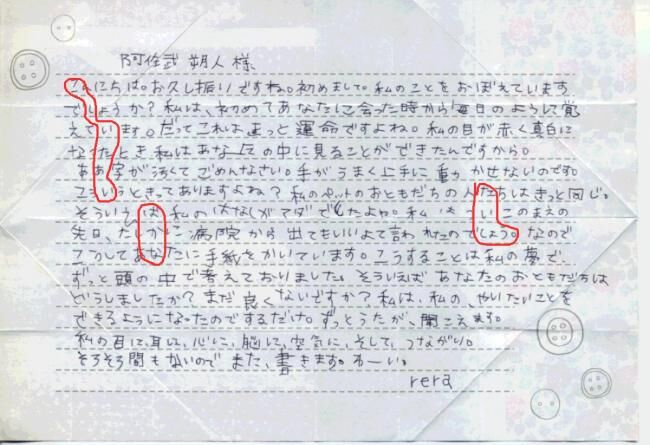 阿佐武 朔人 様
こんにちは。お久し振りですね。初めまして。私のことをおぼえています
でしょうか？私は、初めてあなたに会った時から毎日のように覚
えています。だってこれはきっと運命ですよね。私の目が赤く真白に
なったとき私はあなたの中に見ることができたんですから。
ああ字が汚くてごめんなさい。手がうまく上手に動かせないのです。
こういうときってありますよね？私のペットのおともだちの人たちはきっと同じ。
そういえば私のはなしがまだでしたよね。私は いこのまえの
先日、たしかに病院から出てもいいよて言われたのでしょう。なので
こうしてあなたに手紙をかいています。こうすることは私の夢で
ずっと頭の中で考えておりました。そういえばあなたのおともだちは
どうしましたか？まだ良くないですか？私は、私の、やりたいことを
できるようになったのでするだけ。ずっとうたが、聞こえます。
私の目に、耳に、心に、脳に、空気に、そして、うながり。
そろそろ間もないので また、書きます。わーい。
rera